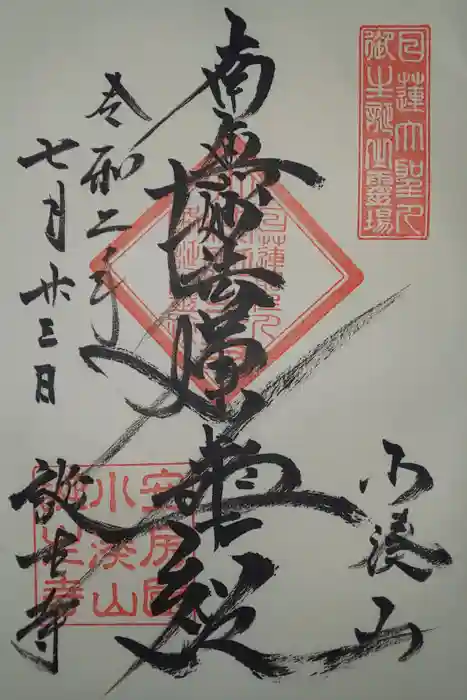 日蓮大聖人
御生誕出霊場
小湊山
南無妙法蓮華経
令和二年
七月廿三日
誕生寺
安房国
小湊山
誕生寺